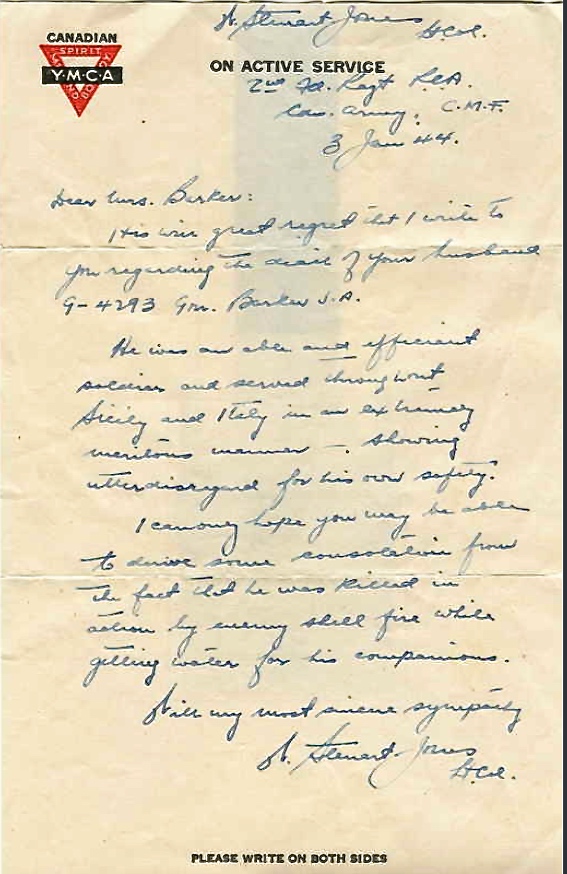 A. Stewart Jones
Lt Col.
CANADIAN
SPIRIT
Y·M·C·A
MIND BODY
ON ACTIVE SERVICE
2nd Fd. Regt R.C.A.
Can. Army, C.M.F.
3 Jan 44.
Dear Mrs. Barker:
It is with great regret that I write to
you regarding the death of your husband
G-4293 Gnr. Barker J.A.
He was an able and efficient
soldier and served throughout
Sicily and Italy in an extremely
meritous manner - showing
utter disregard for his own safety.
I can only hope you may be able
to derive some consolation from
the fact that he was killed in
action by enemy shell fire while
getting water for his companions.
With my most sincere sympathy
A. Stewart Jones
Lt Col.
PLEASE WRITE ON BOTH SIDES